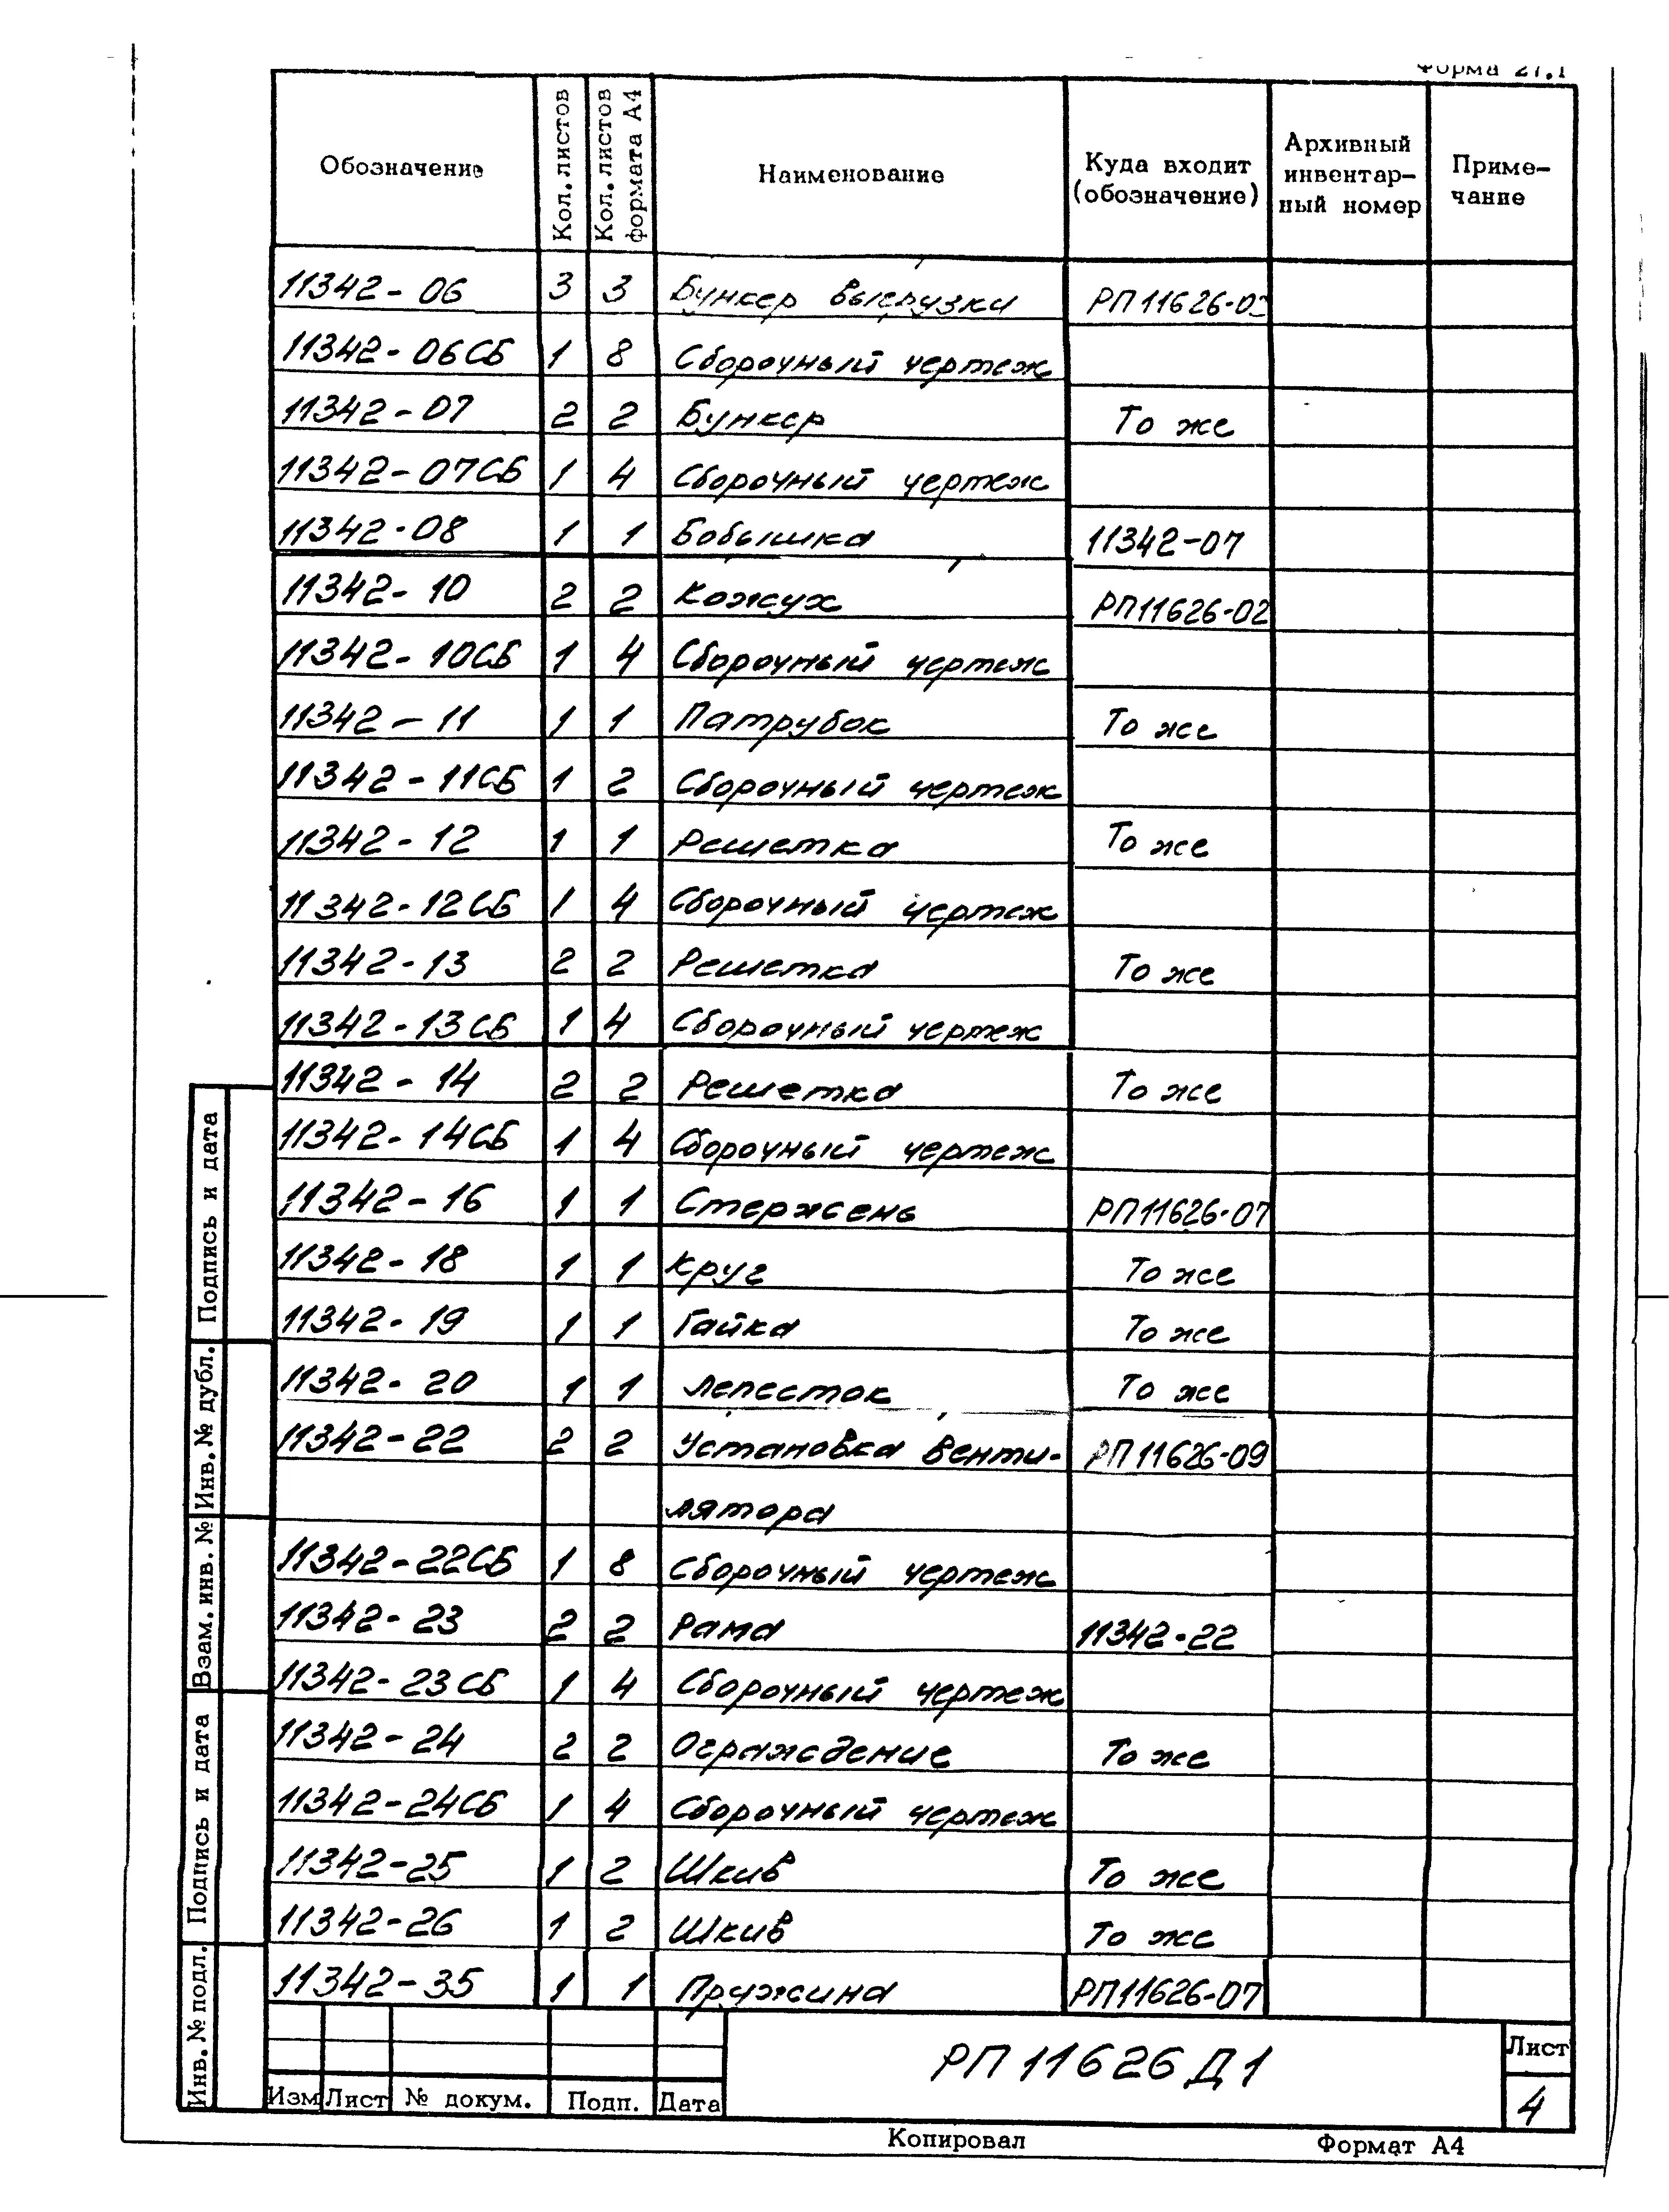 Форма 27.1
Обозначение Кол. листов Кол. листов формата А4 Наименование Куда входит (обозначение) Архивный инвентар- ный номер Приме- чание
11342-06 3 3 Бункер выгрузки
11342-06СБ 1 8 Сборочный чертеж
11342-07 2 2 Бункер То же
11342-07СБ 1 4 Сборочный чертеж
11342-08 1 1 Бобышка 11342-07
11342-10 2 2 Кожух РП11626-02
11342-10СБ 1 4 Сборочный чертеж
11342-11 1 1 Патрубок То же
11342-11СБ 1 2 Сборочный чертеж
11342-12 1 1 Решетка То же
11342-12СБ 1 4 Сборочный чертеж
11342-13 2 2 Решетка То же
11342-13СБ 1 4 Сборочный чертеж
11342-14 2 2 Решетка То же
11342-14СБ 1 4 Сборочный чертеж
11342-16 1 1 Стержень РП11626-07
11342-18 1 1 Круг То же
11342-19 1 1 Гайка То же
11342-20 1 1 Лепесток То же
11342-22 2 2 Установка венти- РП11626-09
лятора
11342-22СБ 1 8 Сборочный чертеж
11342-23 2 2 Рама 11342-22
11342-23СБ 1 4 Сборочный чертеж
11342-24 2 2 Ограждение То же
11342-24СБ 1 4 Сборочный чертеж
11342-25 1 2 Шкив То же
11342-26 1 2 Шкив То же
11342-35 1 1 Пружина РП11626-07
Подпись и дата
Инв. № дубл.
Взам. инв. №
Подпись и дата
Инв. № подл.
РП11626Д1
Лист
4
Изм Лист № докум. Подп. Дата
Копировал Формат А4